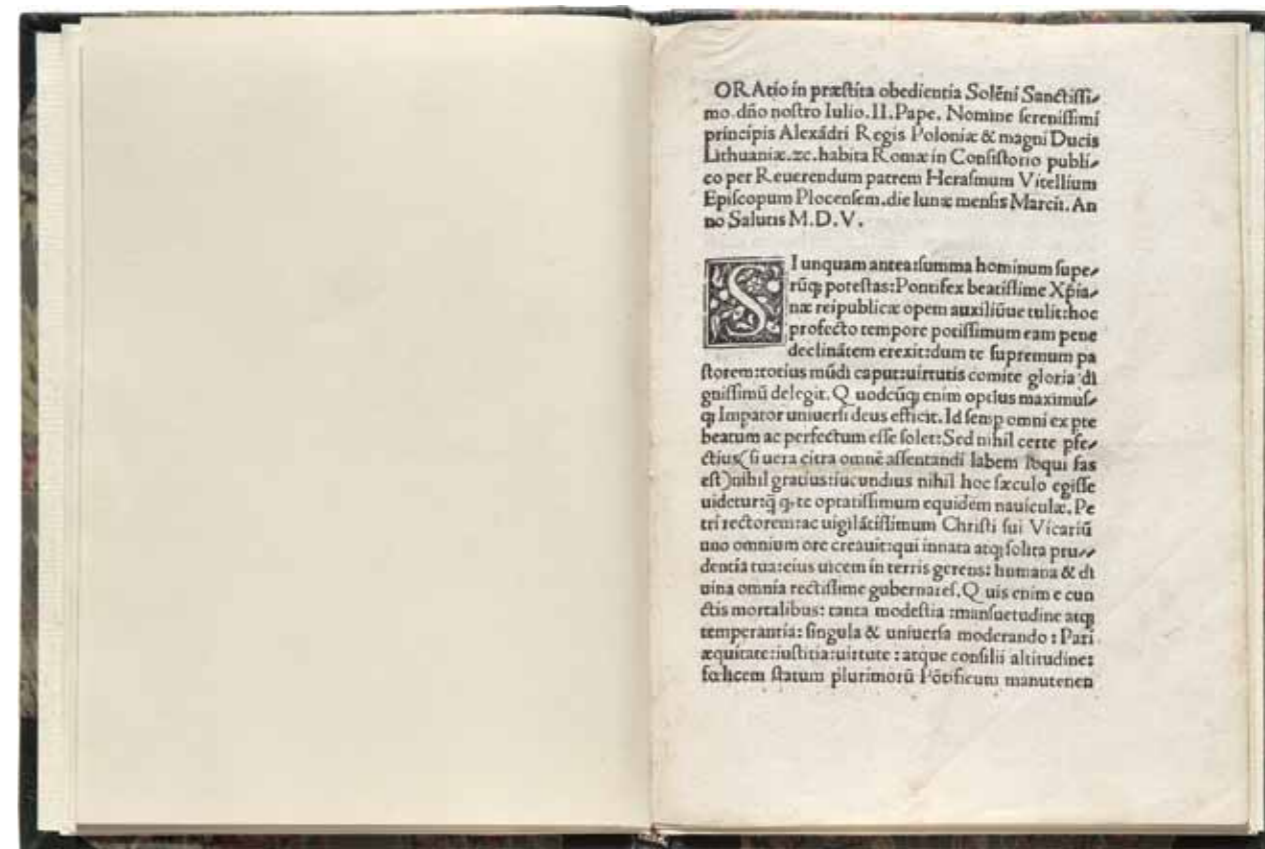 ORAtio in præſtita obedientia Solẽni Sanctiſſi-
mo dño noſtro Iulio.II.Pape. Nomine ſereniſſimi
principis Alexãdri Regis Poloniæ & magni Ducis
Lithuaniæ.zc.habita Romæ in Conſiſtorio publi-
co per Reuerendum patrem Heraſmum Vitellium
Epiſcopum Plocenſem.die lunæ menſis Marcii. An
no Salutis M.D.V.
SI unquam antea:ſumma hominum ſupe-
rũq; poteſtas:Pontifex beatiſſime Xp̃ia-
næ reipublicæ opem auxiliũue tulit:hoc
profecto tempore potiſſimum eam pene
declinãtem erexit:dum te ſupremum pa
ſtorem:totius mũdi caput:uirtutis comite gloria di
gniſſimũ delegit. Quodcũq; enim optius maximuſ-
q; Impator uniuerſi deus efficit. Id ſemp omni ex pte
beatum ac perfectum eſſe ſolet:Sed nihil certe pfe-
ctius(ſi uera citra omnẽ aſſentandi labem loqui fas
eſt)nihil gratius:iucundius nihil hoc ſæculo egiſſe
uidetur:q̃ q, te optatiſſimum equidem nauiculæ. Pe
tri rectorem:ac uigilãtiſſimum Chriſti ſui Vicariũ
uno omnium ore creauit:qui innata atq; ſolita pru-
dentia tua:eius uicem in terris gerens: humana & di
uina omnia rectiſſime gubernareſ. Quis enim e cun
ctis mortalibus: tanta modeſtia :manſuetudine atq;
temperantia: ſingula & uniuerſa moderando : Pari
æquitate:iuſtitia:uirtute : atque conſilii altitudine:
fœlicem ſtatum plurimorũ Põtificum manutenen